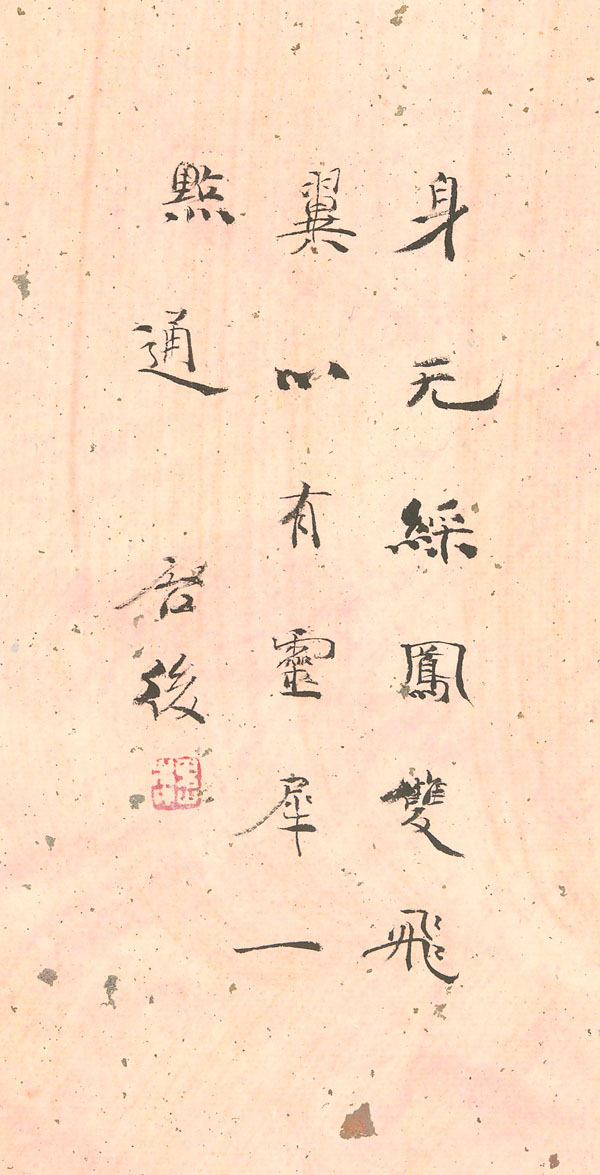 身无綵鳳雙飛
翼心有靈犀一
點通
後